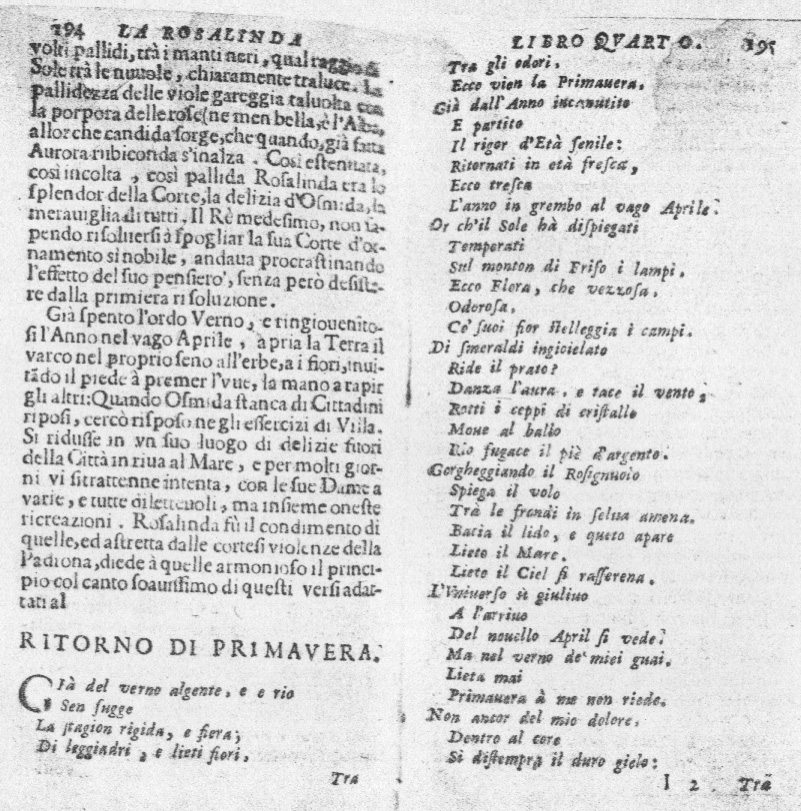 194 LA ROSALINDA
volti pallidi, trà i manti neri, qual raggio di
Sole trà le nuuole, chiaramente traluce. La
pallidezza delle viole gareggia taluolta con
la porpora delle rose (ne men bella, è l'Alba,
allor che candida sorge, che quando, già fatta
Aurora rubiconda s'inalza. Così estenuata,
così incolta, così pallida Rosalinda era lo
splendor della Corte, la delizia d'Osmida, la
merauiglia di tutti. Il Rè medesimo, non sa-
pendo risoluersi à spogliar la sua Corte d'or-
namento si nobile, andaua procrastinando
l'effetto del suo pensiero, senza però desiste-
re dalla primiera risoluzione.
Già spento l'ordo Verno, e ringiouenito-
si l'Anno nel vago Aprile, apria la Terra il
varco nel proprio seno all'erbe, a i fiori, inui-
tãdo il piede à premer l'vue, la mano a rapir
gli altri: Quando Osmida stanca di Cittadini
riposi, cercò risposo ne gli essercizi di Villa.
Si ridusse in vn suo luogo di delizie fuori
della Città in riua al Mare, e per molti gior-
ni vi si trattenne intenta, con le sue Dame a
varie, e tutte diletteuoli, ma insieme oneste
ricreazioni. Rosalinda fù il condimento di
quelle, ed astretta dalle cortesi violenze della
Padrona, diede à quelle armonioso il princi-
pio col canto soauissimo di questi versi adat-
tati al
RITORNO DI PRIMAVERA.
GIà del verno algente, e e rio
Sen fugge
La stagion rigida, e fiera;
Di leggiadri, e lieti fiori,
Tra
LIBRO QVARTO. 195
Tra gli odori,
Ecco vien la Primauera.
Già dall'Anno incanutito
E partito
Il rigor d'Età senile:
Ritornati in età fresca,
Ecco tresca
L'anno in grembo al vago Aprile.
Or ch'il Sole hà dispiegati
Temperati
Sul monton di Friso i lampi,
Ecco Flora, che vezzosa,
Odorosa,
Co' suoi fior stelleggia i campi.
Di smeraldi ingioielato
Ride il prato?
Danza l'aura, e tace il vento;
Rotti i ceppi di cristallo
Moue al ballo
Rio fugace il piè d'argento.
Gorgheggiando il Rosignuolo
Spiega il volo
Trà le frondi in selua amena.
Bacia il lido, e queto apare
Lieto il Mare.
Lieto il Ciel si rasserena.
L'Vniuerso sì giuliuo
A l'arriuo
Del nouello April si vede.
Ma nel verno de' miei guai,
Lieta mai
Primauera à me non riede.
Non ancor del mio dolore,
Dentro al core
Si distempra il duro gielo:
I 2 Trà